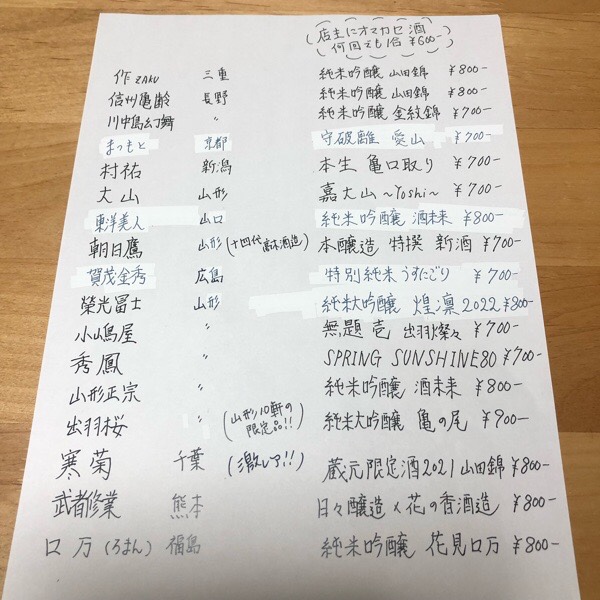 (店主にオマカセ酒
何回でも1合 ¥600-)
作 ZAKU 三重 純米吟醸 山田錦 ¥800-
信州亀齢 長野 純米吟醸 山田錦 ¥800-
川中島幻舞 〃 純米吟醸 金紋錦 ¥700-
まつもと 京都 守破離 愛山 ¥700-
村祐 新潟 本生 亀口取り ¥700-
大山 山形 嘉大山〜Yoshi〜 ¥700-
東洋美人 山口 純米吟醸 酒未来 ¥800-
朝日鷹 山形(十四代 高木酒造) 本醸造 特撰 新酒 ¥700-
賀茂金秀 広島 特別純米 うすにごり ¥700-
榮光冨士 山形 純米大吟醸 煌凛2022 ¥800-
小嶋屋 〃 無題 壱 出羽燦々 ¥700-
秀鳳 〃 SPRING SUNSHINE80 ¥700-
山形正宗 〃 純米吟醸 酒未来 ¥800-
出羽桜 〃 (山形10軒の限定品!!) 純米大吟醸 亀の尾 ¥900-
寒菊 千葉 (激レア!!) 蔵元限定酒2021 山田錦 ¥800-
武者修業 熊本 日々醸造×花の香酒造 ¥800-
口万(ろまん) 福島 純米吟醸 花見口万 ¥800-